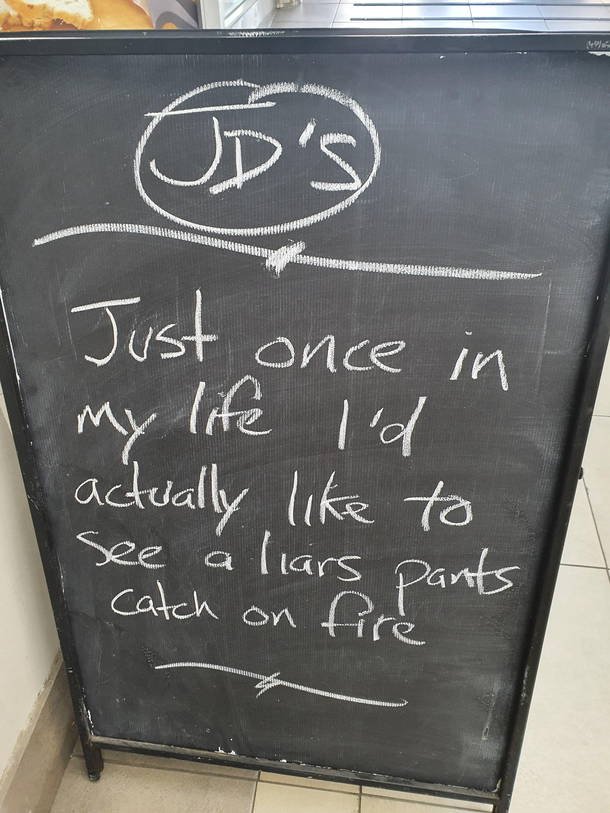 JD's
Just once in
my life I'd
actually like to
see a liars pants
catch on fire